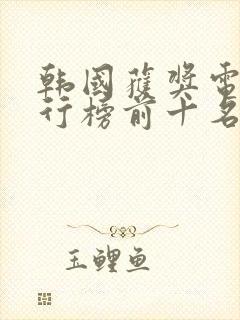 韩国获奖电
行榜前十名
玉鲤鱼